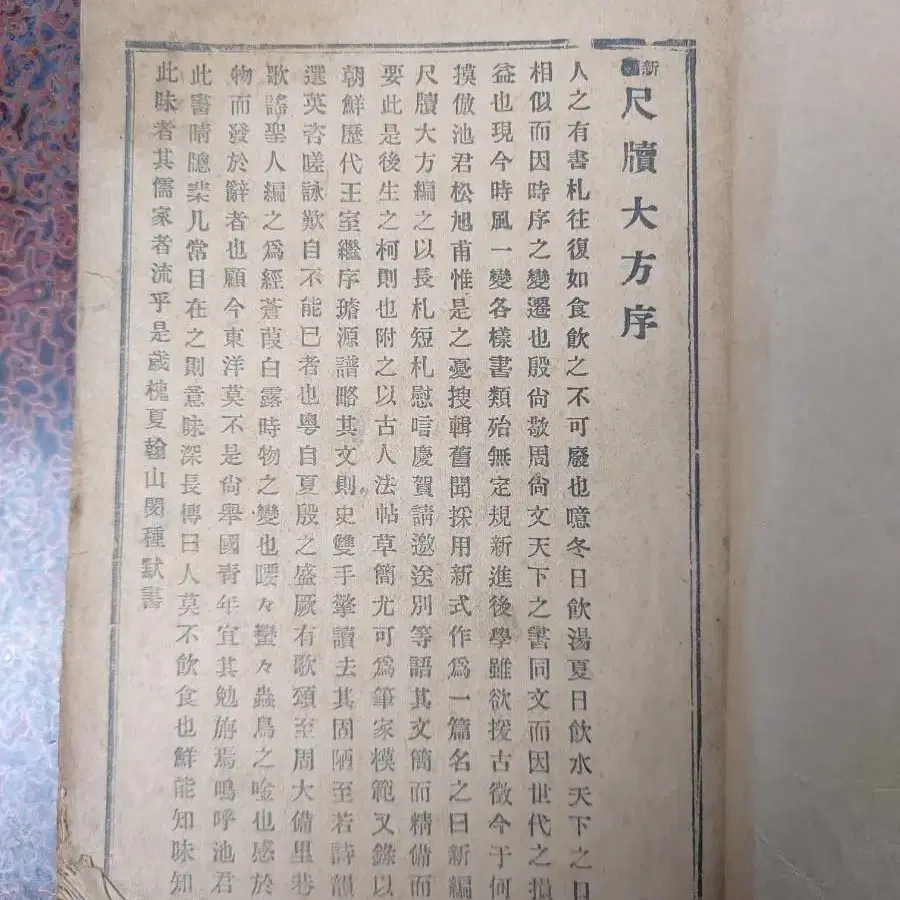 新編
尺牘大方序
人之有書札往復如食飲之不可廢也噫冬日飲湯夏日飲水天下之口
相似而因時序之變遷也殷尙敬周尙文天下之書同文而因世代之損
益也現今時風一變各樣書類殆無定規新進後學雖欲援古徵今于何
摸倣池君松旭甫惟是之憂搜輯舊聞採用新式作爲一篇名之曰新編
尺牘大方編之以長札短札慰唁慶賀請邀送別等語其文簡而精備而
要此是後生之柯則也附之以古人法帖草簡尤可爲筆家模範又錄以
朝鮮歷代王室繼序璿源譜略其文則史雙手擎讀去其固陋至若詩韻
選英咨嗟詠歎自不能已者也粤自夏殷之盛厥有歌頌至周大備里巷
歌謠聖人編之爲經蒼葭白露時物之變也喓々蠻々蟲鳥之唫也感於
物而發於辭者也顧今東洋莫不是尙擧國靑年宜其勉旃焉嗚呼池君
此書晴牕棐几常目在之則意味深長傳曰人莫不飮食也鮮能知味知
此味者其儒家者流乎是歲槐夏翰山閔種默書